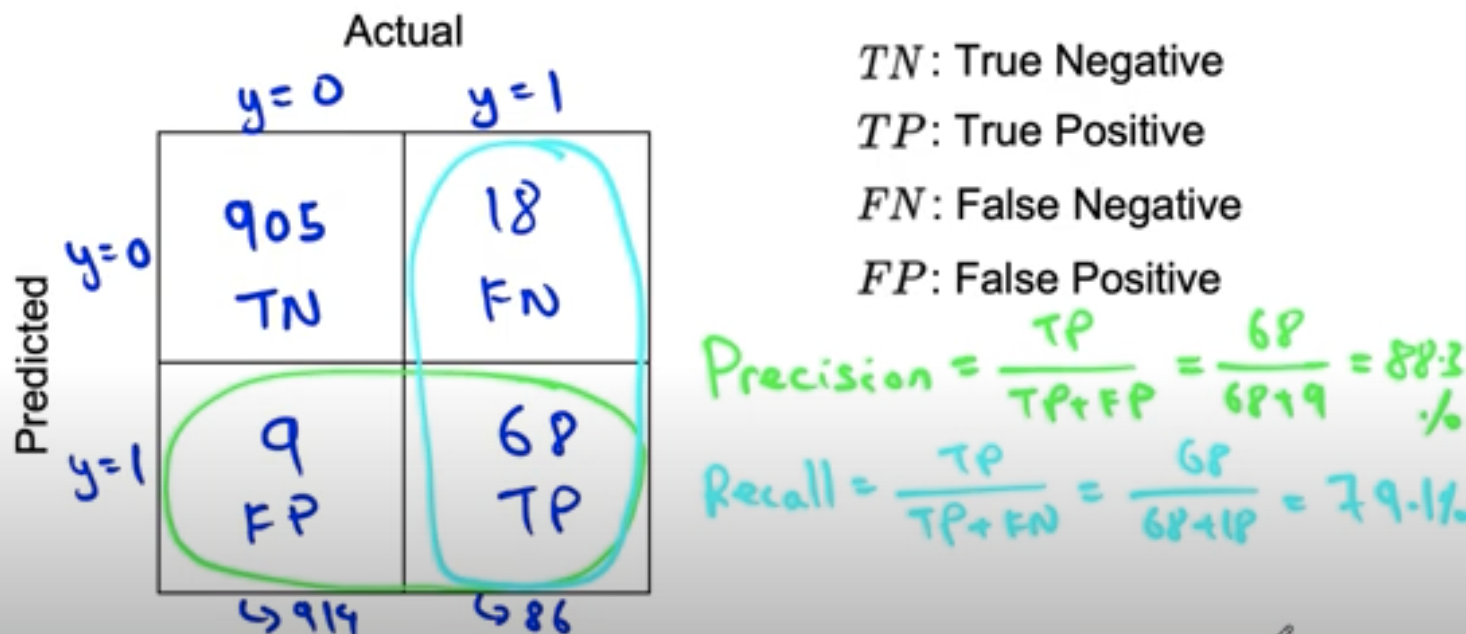 Actual
y=0 y=1
Predicted
y=0
905 18
TN FN
y=1
9 68
FP TP
↳914 ↳86
TN: True Negative
TP: True Positive
FN: False Negative
FP: False Positive
Precision = TP / TP+FP = 68 / 68+9 = 88.3 %
Recall = TP / TP+FN = 68 / 68+18 = 79.1%